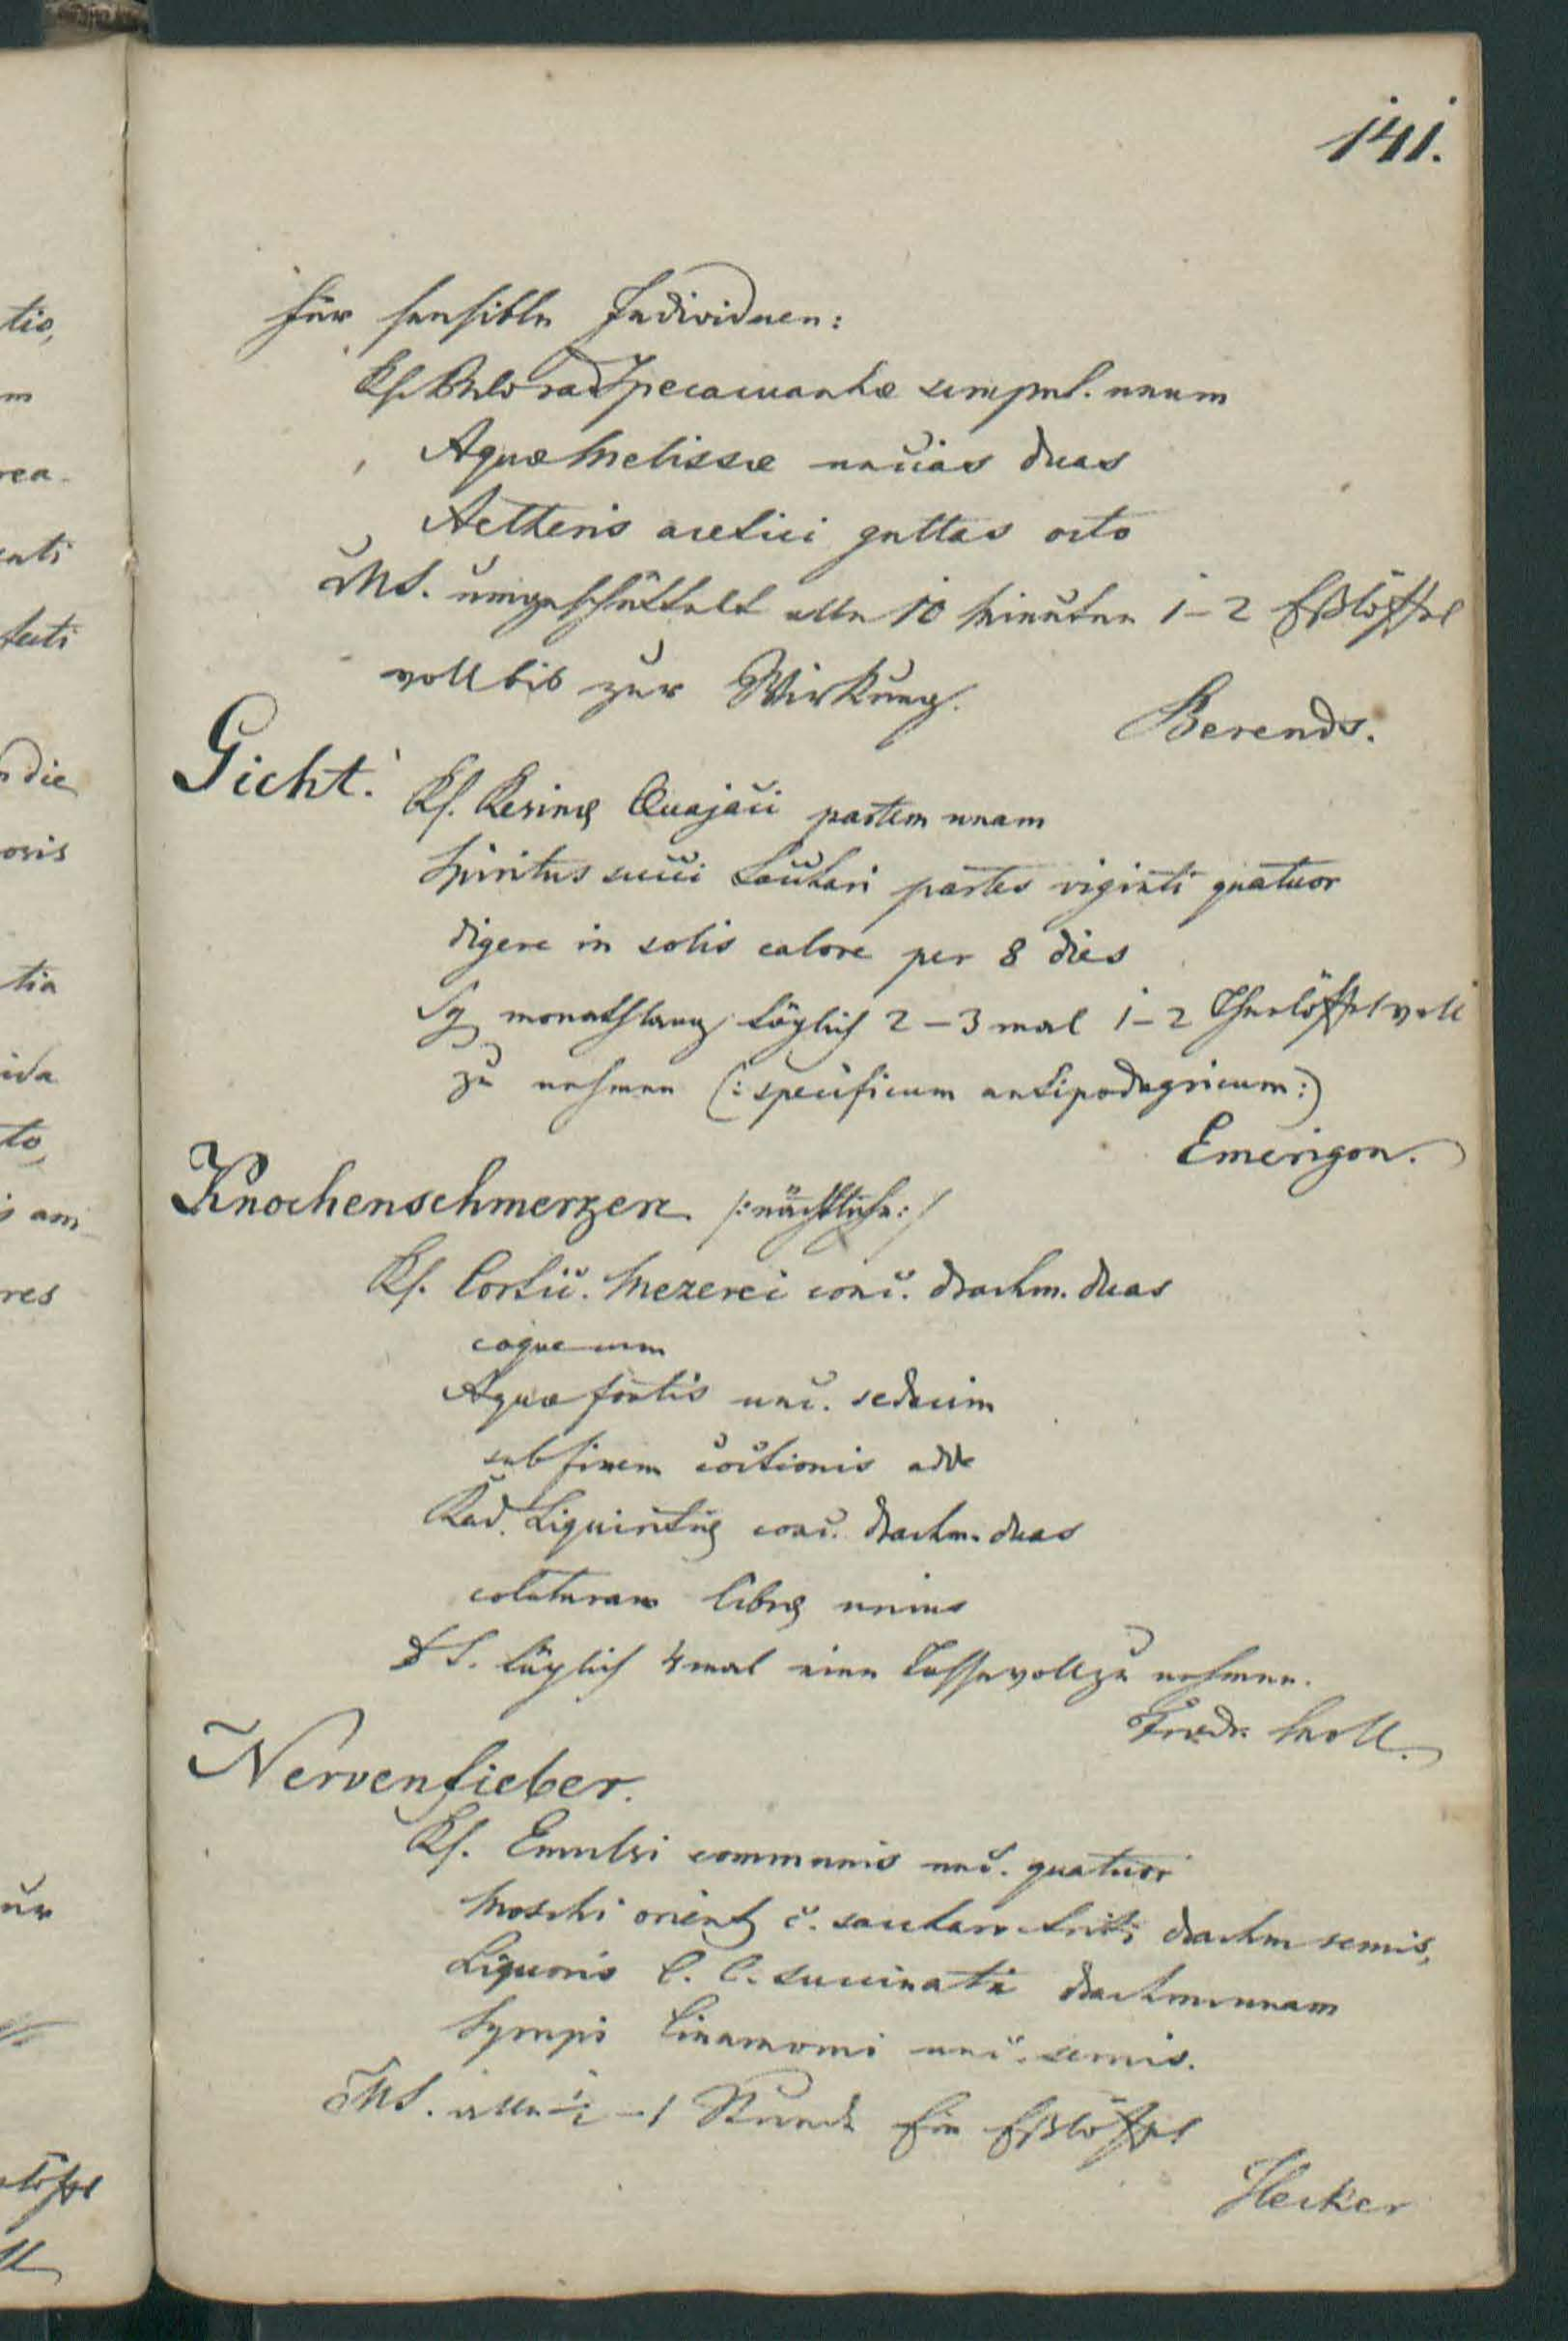 141.
für sensible Individuen:
Rf. Pulv. rad Ipecacuanhæ scrupul. unum
Aquæ Melissæ uncias duas
Aetheris acetici guttas octo
MS. umgeschüttelt alle 10 Minuten 1–2 Eßlöffel
voll bis zur Wirkung.
Berends.
Gicht.
Rf. Resinæ Quajaci partem unam
Spiritus succi Sacchari partes viginti quatuor
digere in solis calore per 8 dies
Sg monathlang täglich 2–3 mal 1–2 Theelöffelvoll
zu nehmen (: specificum antipodagricum :)
Emerigon.
Knochenschmerzen /: nächtliche :/
Rf. Cortic. Mezerei conc. drachm. duas
coque cum
Aquæ fontis unc. sedecim
sub finem coctionis adde
Rad. Liquiritiæ conc. drachm. duas
colaturam libræ unius
DS. täglich 4 mal eine Tasse voll zu nehmen.
Friedr. Moll.
Nervenfieber.
Rf. Emulsi communis unc. quatuor
Moschi orient c. saccharo triti drachm semis,
Liquoris C. C. succinati drachm unam
Syrupi Cinamomi unc. semis.
MS. alle ½–1 Stunde Ein Eßlöffel
Hecker
tio,
m
rea-
cati
die
oris
tia
ida
to,
am
res